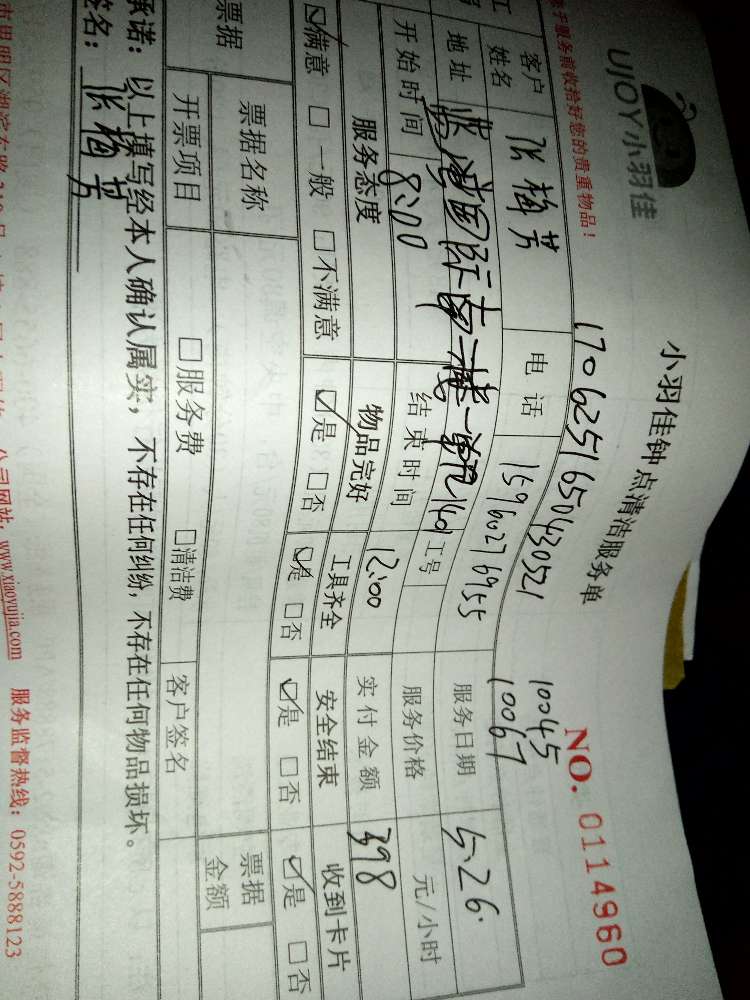 于服务前收拾好您的贵重物品!
UJOY小羽佳
小羽佳钟点清洁服务单
NO. 0114960
1706251650430521
10045
10067
客户姓名 张梅芳 电话 15960276955 服务日期 5.26.
地址 国际南二楼一 1401 工号 服务价格 元/小时
开始时间 8:00 结束时间 12:00 实付金额 398
服务态度 物品完好 工具齐全 安全结束 收到卡片
☑满意 □一般 □不满意 ☑是 □否 ☑是 □否 ☑是 □否 ☑是 □否
票据 票据名称 票据金额
开票项目 □服务费 □清洁费 客户签名
承诺：以上填写经本人确认属实，不存在任何纠纷，不存在任何物品损坏。
签名：张梅芳
公司网站：www.xiaoyujia.com 服务监督热线：0592-5888123